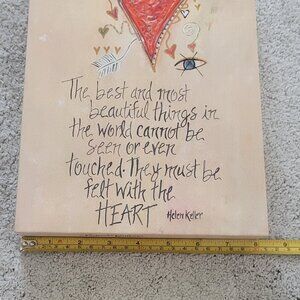 The best and most
beautiful things in
the world cannot be
seen or even
touched. They must be
felt with the
HEART Helen Keller